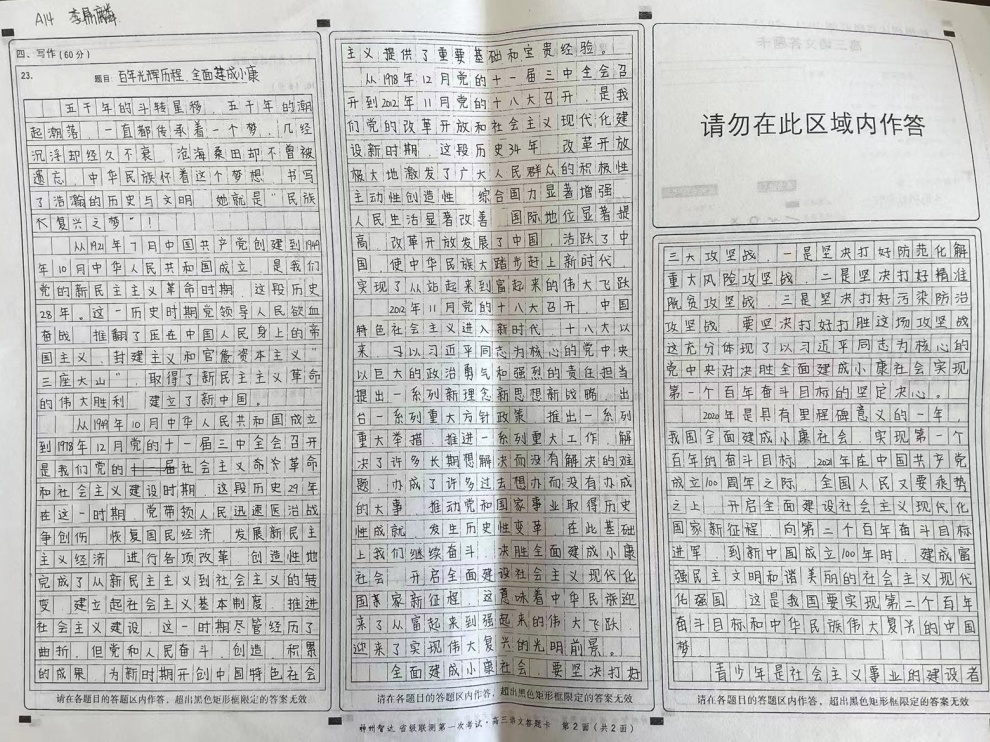 A14 李鼎麟
四、写作(60分)
23. 题目:百年光辉历程,全面建成小康
五千年的斗转星移,五千年的潮
起潮落,一直都传承着一个梦,几经
沉浮却经久不衰,沧海桑田却不曾被
遗忘,中华民族怀着这个梦想,书写
了浩瀚的历史与文明,她就是“民族
伟复兴之梦”!
从1921年7月中国共产党创建到1949
年10月中华人民共和国成立,是我们
党的新民主主义革命时期,这段历史
28年。这一历史时期党领导人民欲血
奋战,推翻了压在中国人民身上的帝
国主义、封建主义和官僚资本主义“
三座大山”,取得了新民主主义革命
的伟大胜利,建立了新中国。
从1949年10月中华人民共和国成立
到1978年12月党的十一届三中全会召开
是我们党的社会主义革命
和社会主义建设时期,这段历史29年
在这一时期,党带领人民迅速医治战
争创伤,恢复国民经济,发展新民主
主义经济,进行各项改革,创造性地
完成了从新民主主义到社会主义的转
变,建立起社会主义基本制度,推进
社会主义建设,这一时期尽管经历了
曲折,但党和人民奋斗、创造、积累
的成果,为新时期开创中国特色社会
请在各题目的答题区内作答,超出黑色矩形框限定的答案无效
主义提供了重要基础和宝贵经验。
从1978年12月党的十一届三中全会召
开到2012年11月党的十八大召开,是我
们党的改革开放和社会主义现代化建
设新时期,这段历史34年,改革开放
极大地激发了广大人民群众的积极性
主动性创造性,综合国力显著增强,
人民生活显著改善,国际地位显著提
高,改革开放发展了中国,活跃了中
国,使中华民族大踏步赶上新时代,
实现了从站起来到富起来的伟大飞跃
2012年11月党的十八大召开,中国
特色社会主义进入新时代,十八大以
来,以习近平同志为核心的党中央
以巨大的政治勇气和强烈的责任担当
提出一系列新理念新思想新战略,出
台一系列重大方针政策,推出一系列
重大举措,推进一系列重大工作,解
决了许多长期想解决而没有解决的难
题,办成了许多过去想办而没有办成
的大事,推动党和国家事业取得历史
性成就,发生历史性变革,在此基础
上我们继续奋斗,决胜全面建成小康
社会,开启全面建设社会主义现代化
国家新征程,这意味着中华民族迎
来了从富起来到强起来的伟大飞跃,
迎来了实现伟大复兴的光明前景。
全面建成小康社会,要坚决打好
请在各题目的答题区内作答,超出黑色矩形框限定的答案无效
神州智达 省级联测第一次考试·高三语文答题卡 第2面(共2面)
请勿在此区域内作答
三大攻坚战,一是坚决打好防范化解
重大风险攻坚战,二是坚决打好精准
脱贫攻坚战,三是坚决打好污染防治
攻坚战,要坚决打好打胜这场攻坚战
这充分体现了以习近平同志为核心的
党中央对决胜全面建成小康社会实现
第一个百年奋斗目标的坚定决心。
2020年是具有里程碑意义的一年,
我国全面建成小康社会,实现第一个
百年的奋斗目标,2021年在中国共产党
成立100周年之际,全国人民又要乘势
之上,开启全面建设社会主义现代化
国家新征程,向第二个百年奋斗目标
进军,到新中国成立100年时,建成富
强民主文明和谐美丽的社会主义现代
化强国,这是我国要实现第二个百年
奋斗目标和中华民族伟大复兴的中国
梦
青少年是社会主义事业的建设者
请在各题目的答题区内作答,超出黑色矩形框限定的答案无效